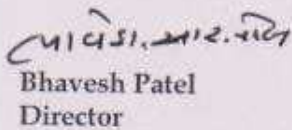 ભાવેશ. આર.
Bhavesh Patel
Director